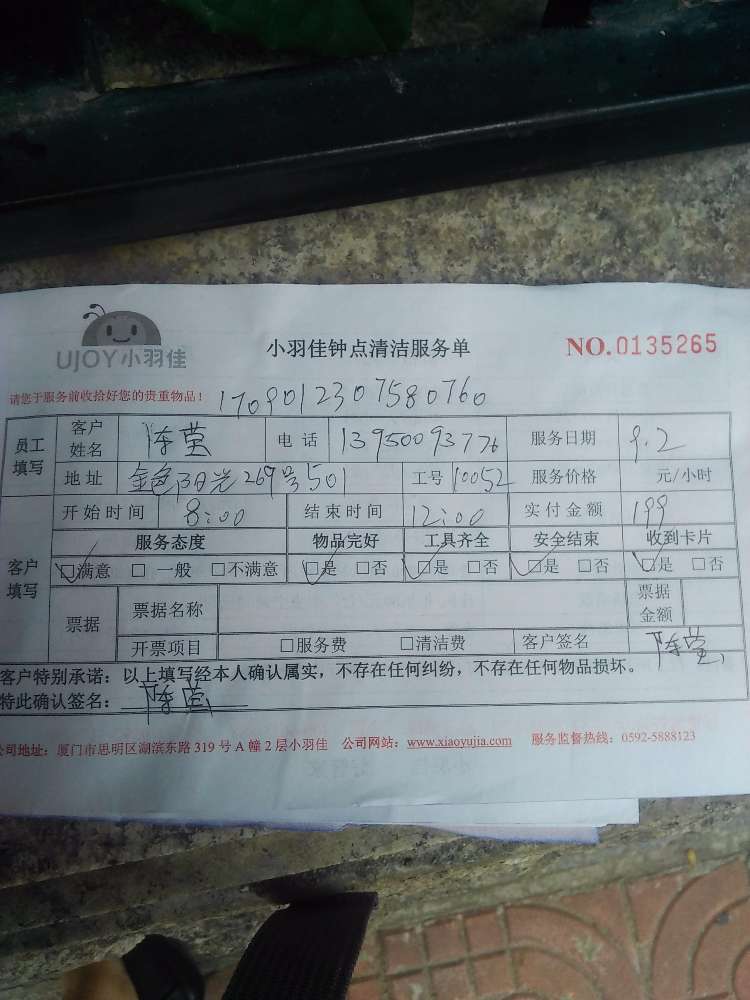 UJOY小羽佳 小羽佳钟点清洁服务单 NO.0135265
请您于服务前收拾好您的贵重物品！ 1709012307580760
员工填写 客户姓名 陈莹 电话 13950093776 服务日期 9.2
地址 金色阳光269号501 工号 10052 服务价格 元/小时
客户填写 开始时间 8:00 结束时间 12:00 实付金额 199
服务态度 物品完好 工具齐全 安全结束 收到卡片
☑满意 □一般 □不满意 ☑是 □否 ☑是 □否 ☑是 □否 ☑是 □否
票据 票据名称 票据金额
开票项目 □服务费 □清洁费 客户签名 陈莹
客户特别承诺：以上填写经本人确认属实，不存在任何纠纷，不存在任何物品损坏。
特此确认签名：陈莹
公司地址：厦门市思明区湖滨东路 319 号 A 幢 2 层小羽佳 公司网站：www.xiaoyujia.com 服务监督热线：0592-5888123